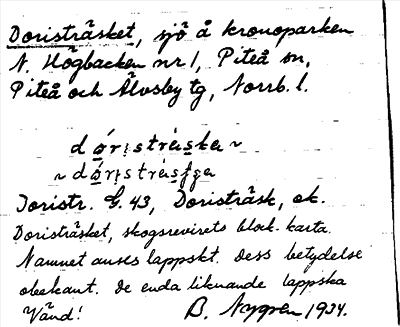 Doristräsket, sjö å kronoparken
N. Högbacken nr 1, Piteå sn,
Piteå och Älvsby tg, Norrb. l.
dǫ́risträ̀ska ~
~ dǫ́risträ̀sʃga
Doristr. G. 43, Doristräsk, ek.
Doristräsket, skogsrevirets block. karta.
Namnet anses lappskt. Dess betydelse
obekant. De enda liknande lappska
Vänd! B. Nygren 1934.